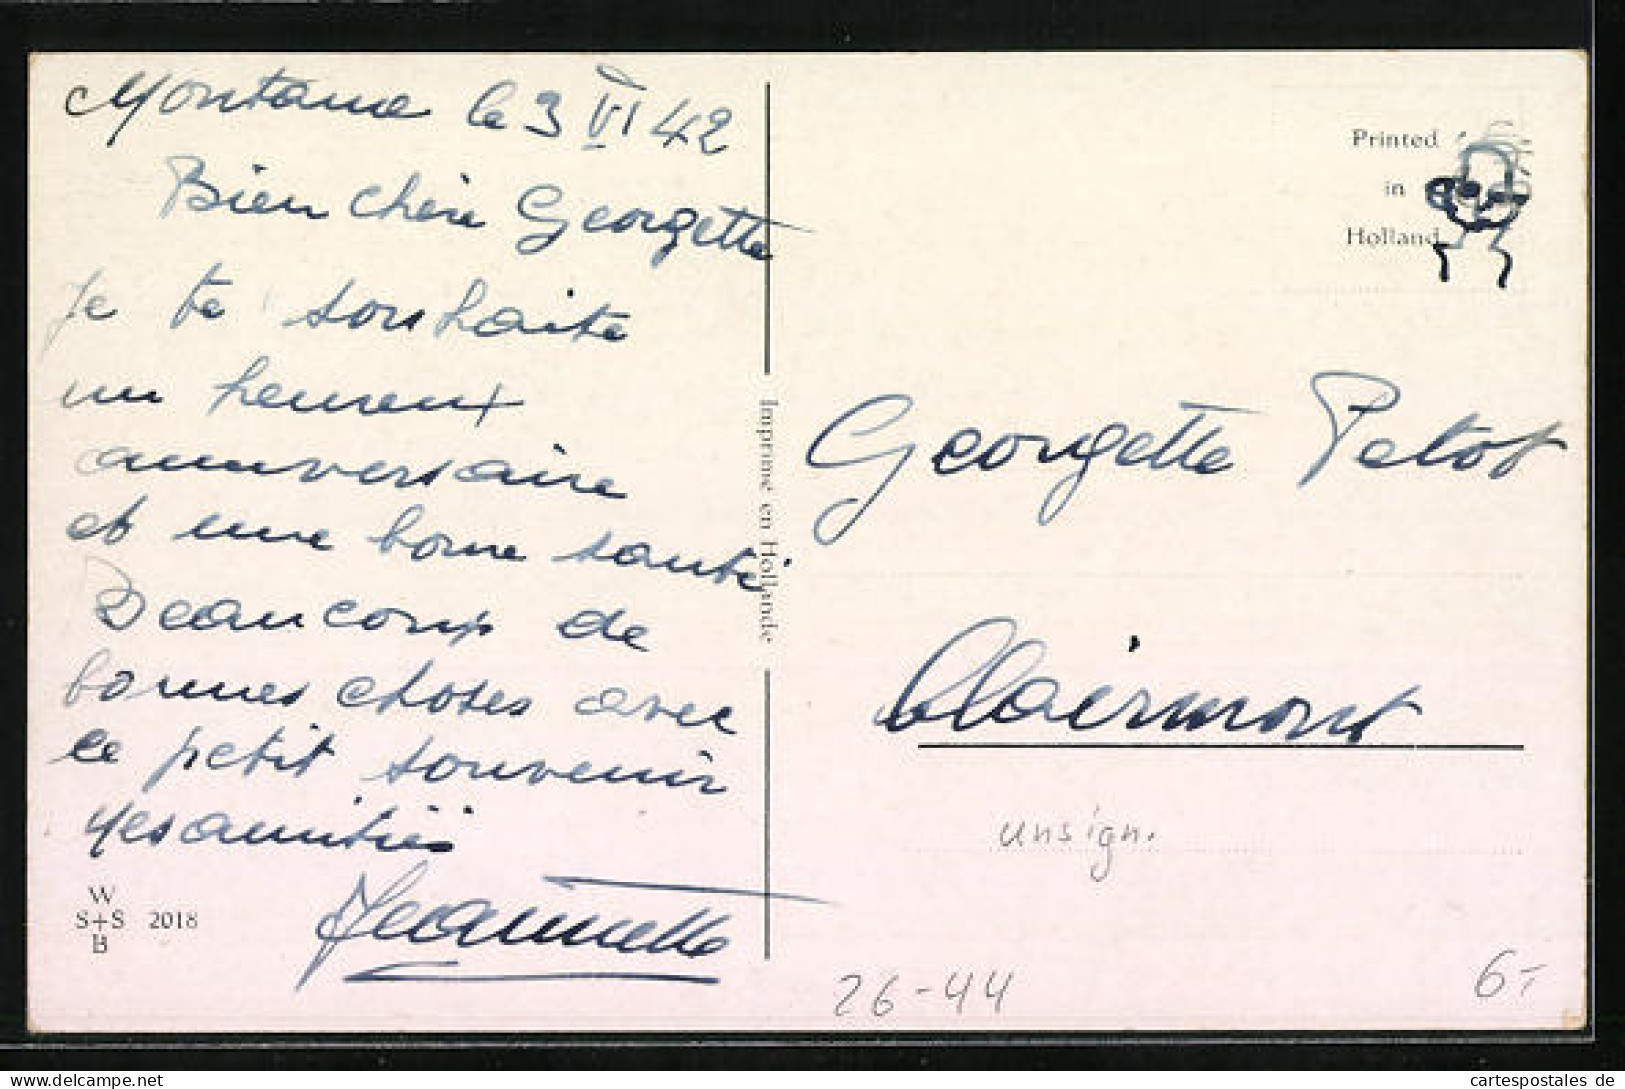 Montana le 3 VI 42
Bien chère Georgette
je te souhaite
un heureux
anniversaire
et une bonne santé
Beaucoup de
bonnes choses avec
ce petit souvenir
Mes amitiés
Jeannette
W
S+S 2018
B
Imprimé en Hollande
Printed
in
Holland
Georgette Petot
Clairmont
unsign.
26-44
6,-
cartespostales de